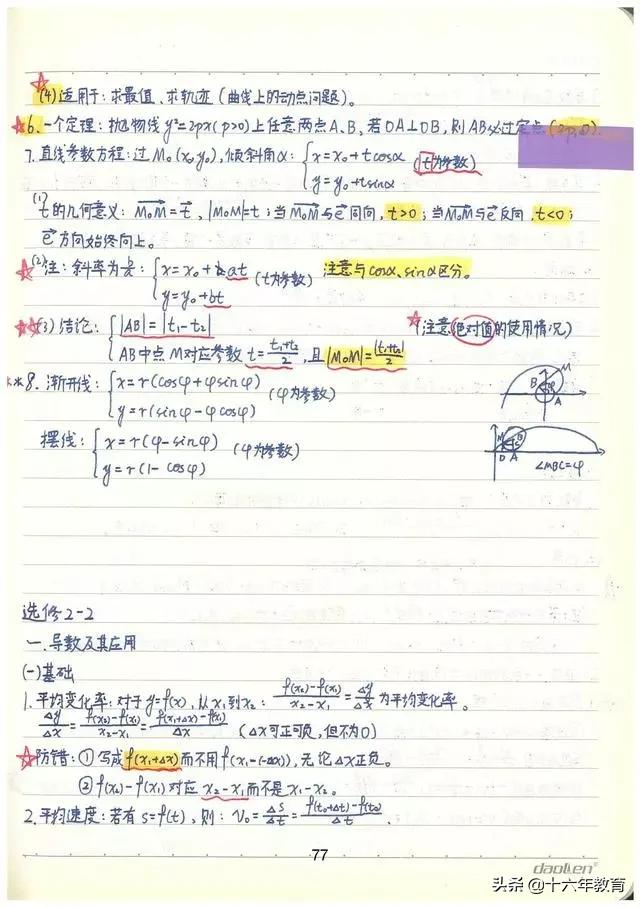 (4)适用于：求最值、求轨迹（曲线上的动点问题）。
6. 一个定理：抛物线y²=2px(p>0)上任意两点A、B，若OA⊥OB，则AB必过定点(2p,0).
7. 直线参数方程：过M₀(x₀,y₀)，倾斜角α：{x=x₀+tcosα (t为参数)
y=y₀+tsinα
(1) t的几何意义：M₀M→=t→，|M₀M|=t；当M₀M→与e→同向，t>0；当M₀M→与e→反向，t<0；
e→方向始终向上。
(2)注：斜率为b/a：{x=x₀+at (t为参数) 注意与cosα、sinα区分。
y=y₀+bt
(3)结论：{|AB|=|t₁-t₂| (注意绝对值的使用情况)
AB中点M对应参数t=(t₁+t₂)/2，且|M₀M|=|t₁+t₂|/2
8. 渐开线：{x=r(cosφ+φsinφ) (φ为参数)
y=r(sinφ-φcosφ)
M
B φ
A
摆线：{x=r(φ-sinφ) (φ为参数)
y=r(1-cosφ)
M B
D A
∠MBC=φ
选修2-2
一.导数及其应用
(一)基础
1.平均变化率：对于y=f(x)，从x₁到x₂：(f(x₂)-f(x₁))/(x₂-x₁)=Δy/Δx为平均变化率。
Δy/Δx=(f(x₂)-f(x₁))/(x₂-x₁)=(f(x₁+Δx)-f(x₁))/Δx (Δx可正可负，但不为0)
防错：①写成f(x₁+Δx)而不用f(x₁-(-Δx))，无论Δx正负。
②f(x₂)-f(x₁)对应x₂-x₁而不是x₁-x₂。
2.平均速度：若有s=f(t)，则：v₀=Δs/Δt=(f(t₀+Δt)-f(t₀))/Δt.
77
daolien®
头条@十六年教育